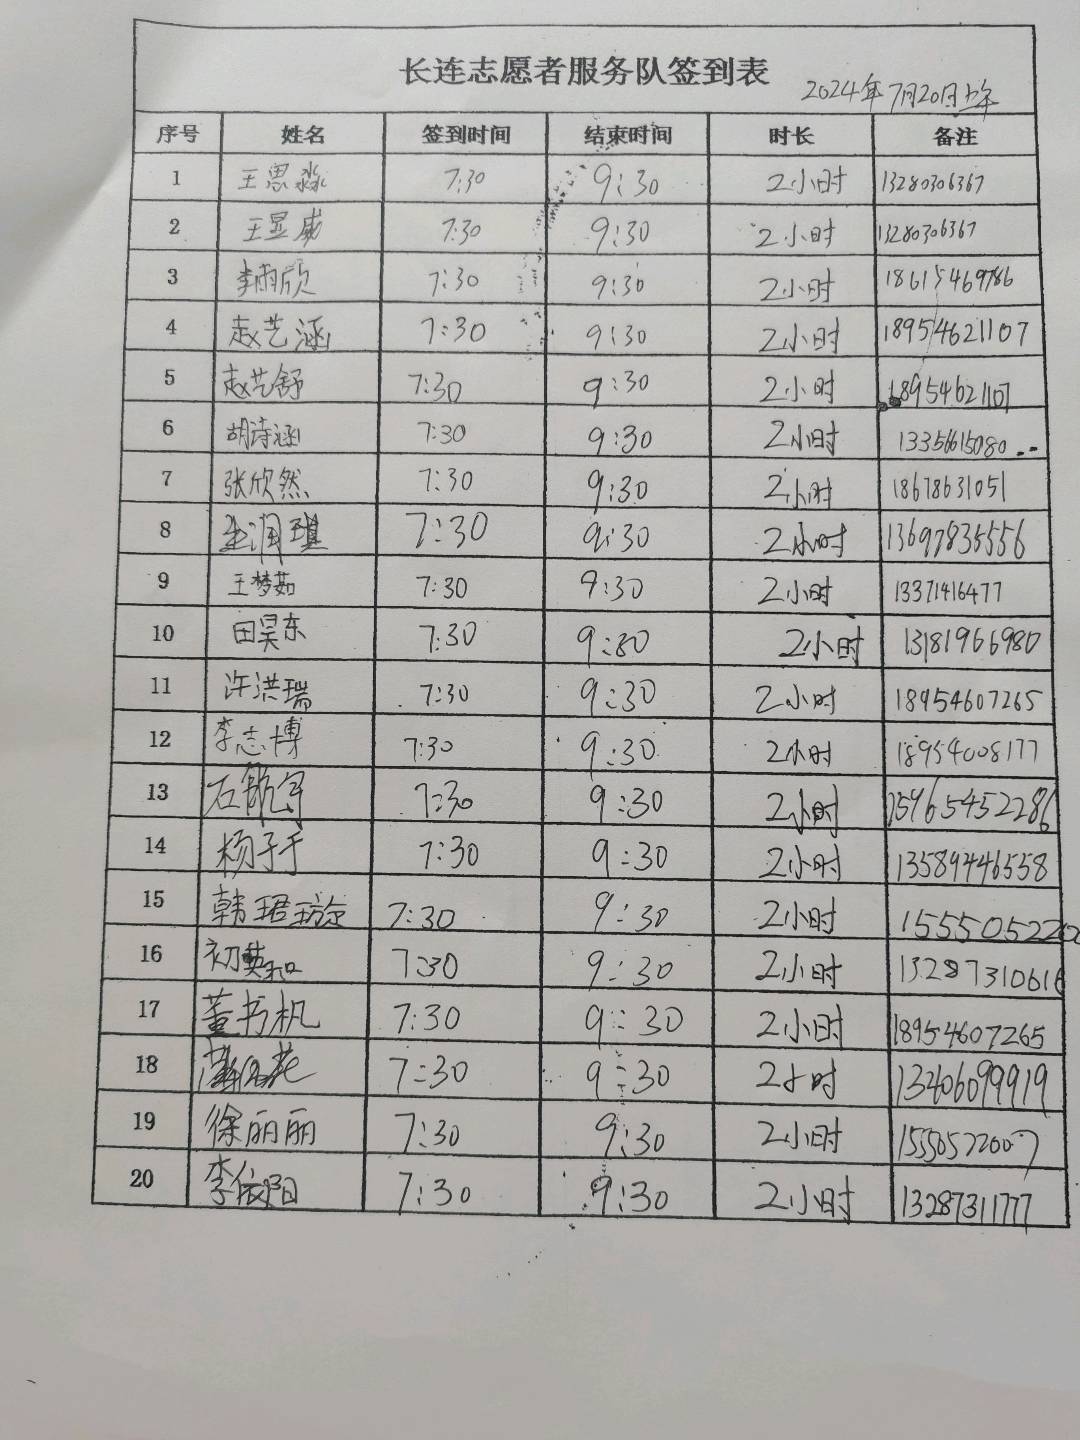 长连志愿者服务队签到表
2024年7月20日上午
序号 姓名 签到时间 结束时间 时长 备注
1 王思淼 7:30 9:30 2小时 13280306367
2 王显威 7:30 9:30 2小时 13280306367
3 李雨欣 7:30 9:30 2小时 18615469786
4 赵艺涵 7:30 9:30 2小时 18954621107
5 赵艺舒 7:30 9:30 2小时 18954621107
6 胡诗涵 7:30 9:30 2小时 13356615080
7 张欣然 7:30 9:30 2小时 18678631051
8 7:30 9:30 2小时 13697835556
9 王梦茹 7:30 9:30 2小时 13371416477
10 田昊东 7:30 9:30 2小时 13181966980
11 许洪瑞 7:30 9:30 2小时 18954607265
12 李志博 7:30 9:30 2小时 18954008177
13 7:30 9:30 2小时 15965452286
14 杨子于 7:30 9:30 2小时 13589446558
15 韩珺璇 7:30 9:30 2小时
16 初英和 7:30 9:30 2小时 13287310616
17 董书帆 7:30 9:30 2小时 18954607265
18 7:30 9:30 2小时 13406099919
19 徐丽丽 7:30 9:30 2小时
20 李依阳 7:30 9:30 2小时 13287311777